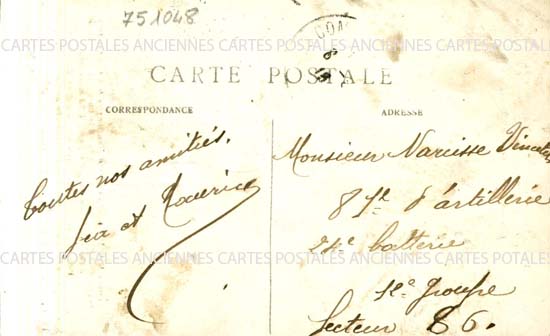 751048
CARTES POSTALES ANCIENNES CARTES POSTALES ANCIENNES CARTES POSTALES ANCIENNES
CARTE POSTALE
CORRESPONDANCE
Toutes nos amitiés.
et
ADRESSE
Monsieur Narcisse
d'artillerie
batterie
Groupe
Secteur 86.
CARTES POSTALES ANCIENNES CARTES POSTALES ANCIENNES CARTES POSTALES ANCIENNES